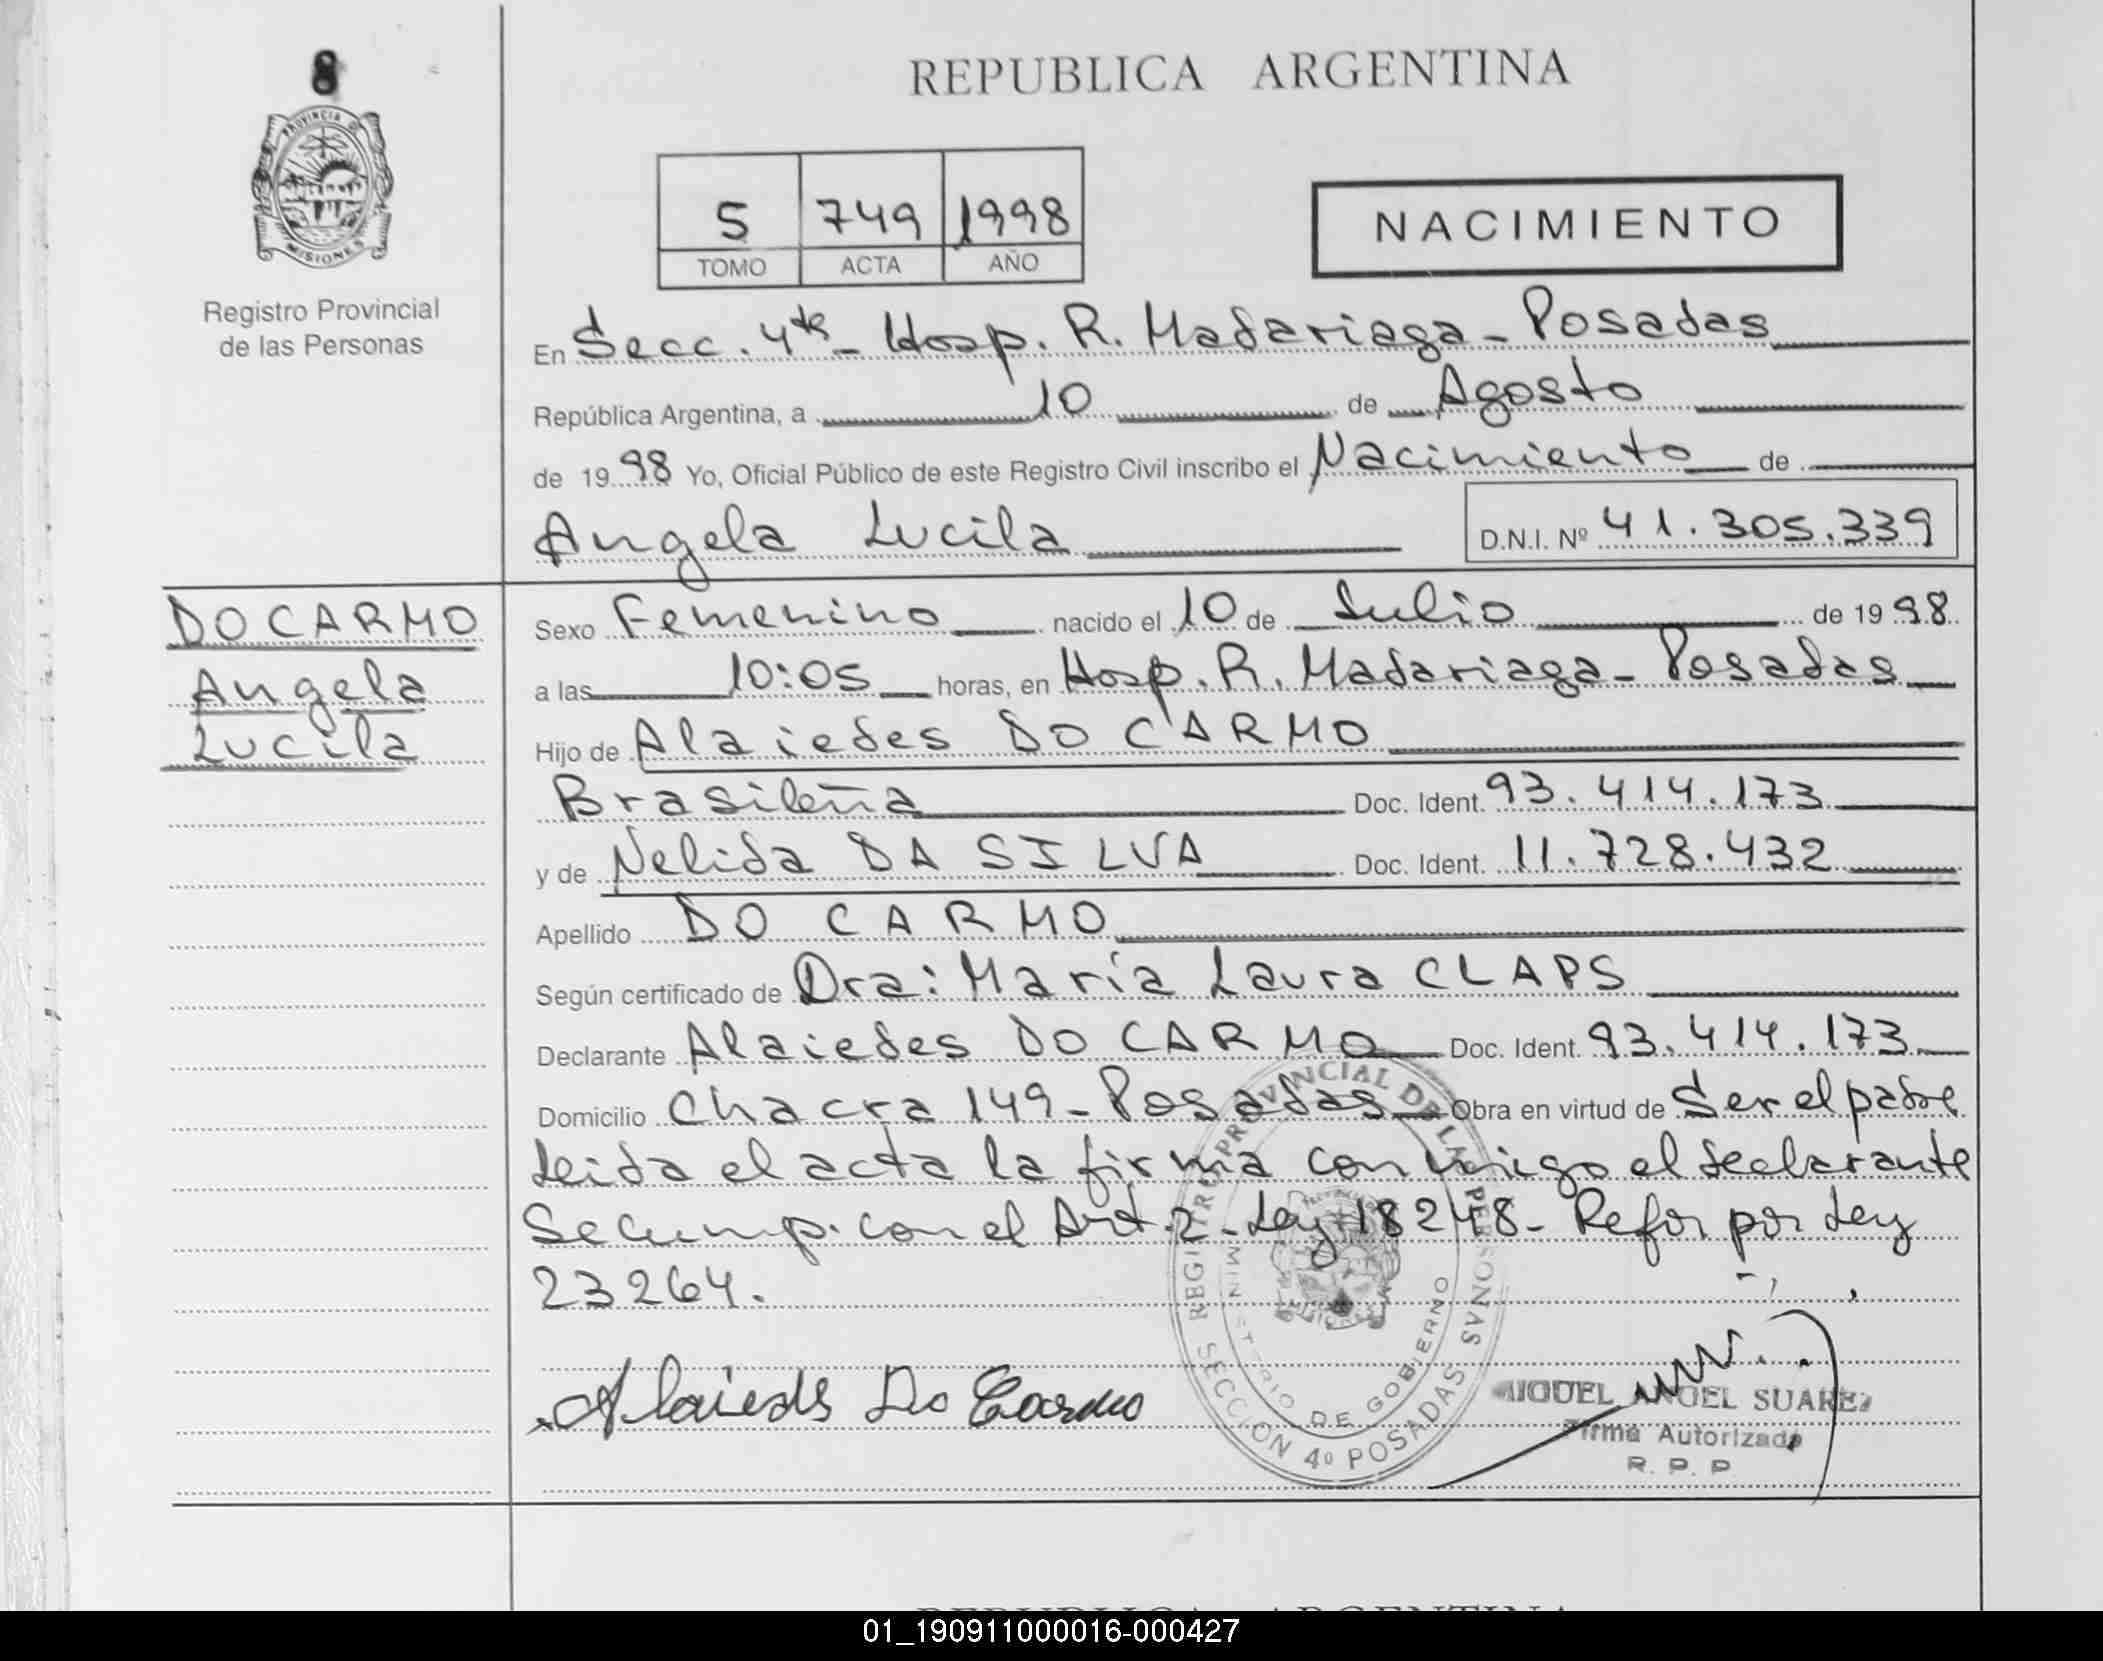 8
REPUBLICA ARGENTINA
PROVINCIA DE
MISIONES
Registro Provincial
de las Personas
5 749 1998
TOMO ACTA AÑO
NACIMIENTO
En Secc. 4ta - Hosp. R. Madariaga - Posadas
República Argentina, a 10 de Agosto
de 1998 Yo, Oficial Público de este Registro Civil inscribo el Nacimiento de
Angela Lucila D.N.I. Nº 41.305.339
DO CARMO
Angela
Lucila
Sexo Femenino nacido el 10 de Julio de 1998
a las 10:05 horas, en Hosp. R. Madariaga - Posadas
Hijo de Alaiedes DO CARMO
Brasileña Doc. Ident. 93.414.173
y de Nelida DA SILVA Doc. Ident. 11.728.432
Apellido DO CARMO
Según certificado de Dra: María Laura CLAPS
Declarante Alaiedes DO CARMO Doc. Ident. 93.414.173
Domicilio Chacra 149 - Posadas Obra en virtud de Ser el padre
Leida el acta la firma conmigo el declarante
Se cump. con el Art. 2 - Ley 18248 - Refor por Ley
23264.
Alaieds Do Carmo
REGISTRO PROVINCIAL DE LAS PERSONAS
MINISTERIO DE GOBIERNO
SECCION 4º POSADAS
MIGUEL ANGEL SUAREZ
Firma Autorizada
R. P. P.
REPUBLICA ARGENTINA
01_190911000016-000427